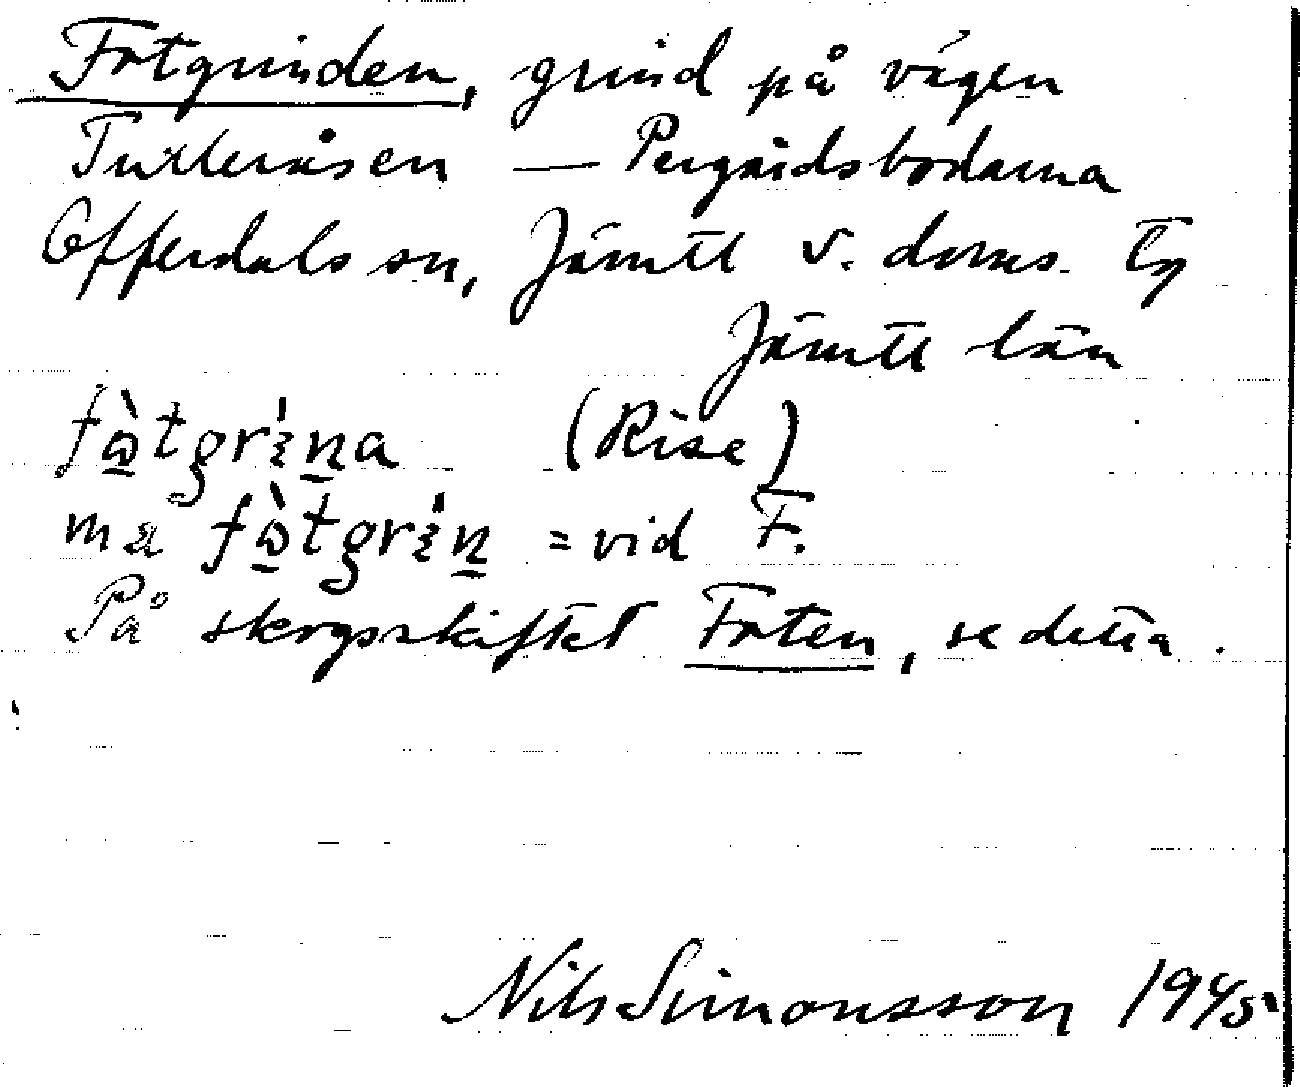 Fotgrinden, grind på vägen
Tuxteråsen — Pergårdsbodarna
Offerdals sn, Jämtl v. doms. tg
Jämtl län
fɷ̀tgrina (Rise)
mæ fɷ̀tgrin = vid F.
På skogsskiftet Foten, se detta.
Nils Simonsson 1945